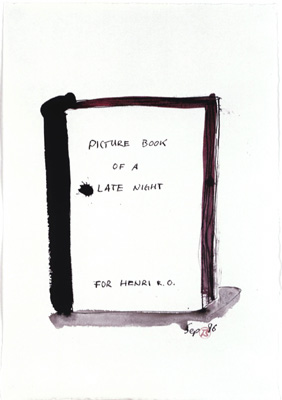 PICTURE BOOK
OF A
LATE NIGHT
FOR HENRI R.O.
Sep 86